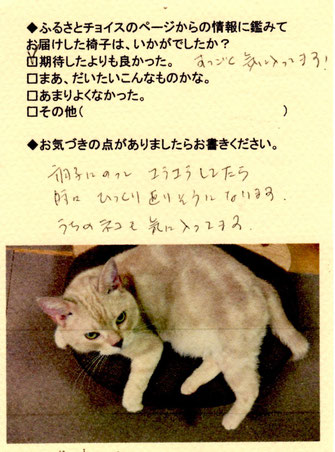 ◆ふるさとチョイスのページからの情報に鑑みて
お届けした椅子は、いかがでしたか？
☑期待したよりも良かった。 すっごく気に入ってます!
□まあ、だいたいこんなものかな。
□あまりよくなかった。
□その他( )
◆お気づきの点がありましたらお書きください。
椅子にのって ユラユラしてたら
ひっくり返りそうになります.
うちのネコも気に入ってます.